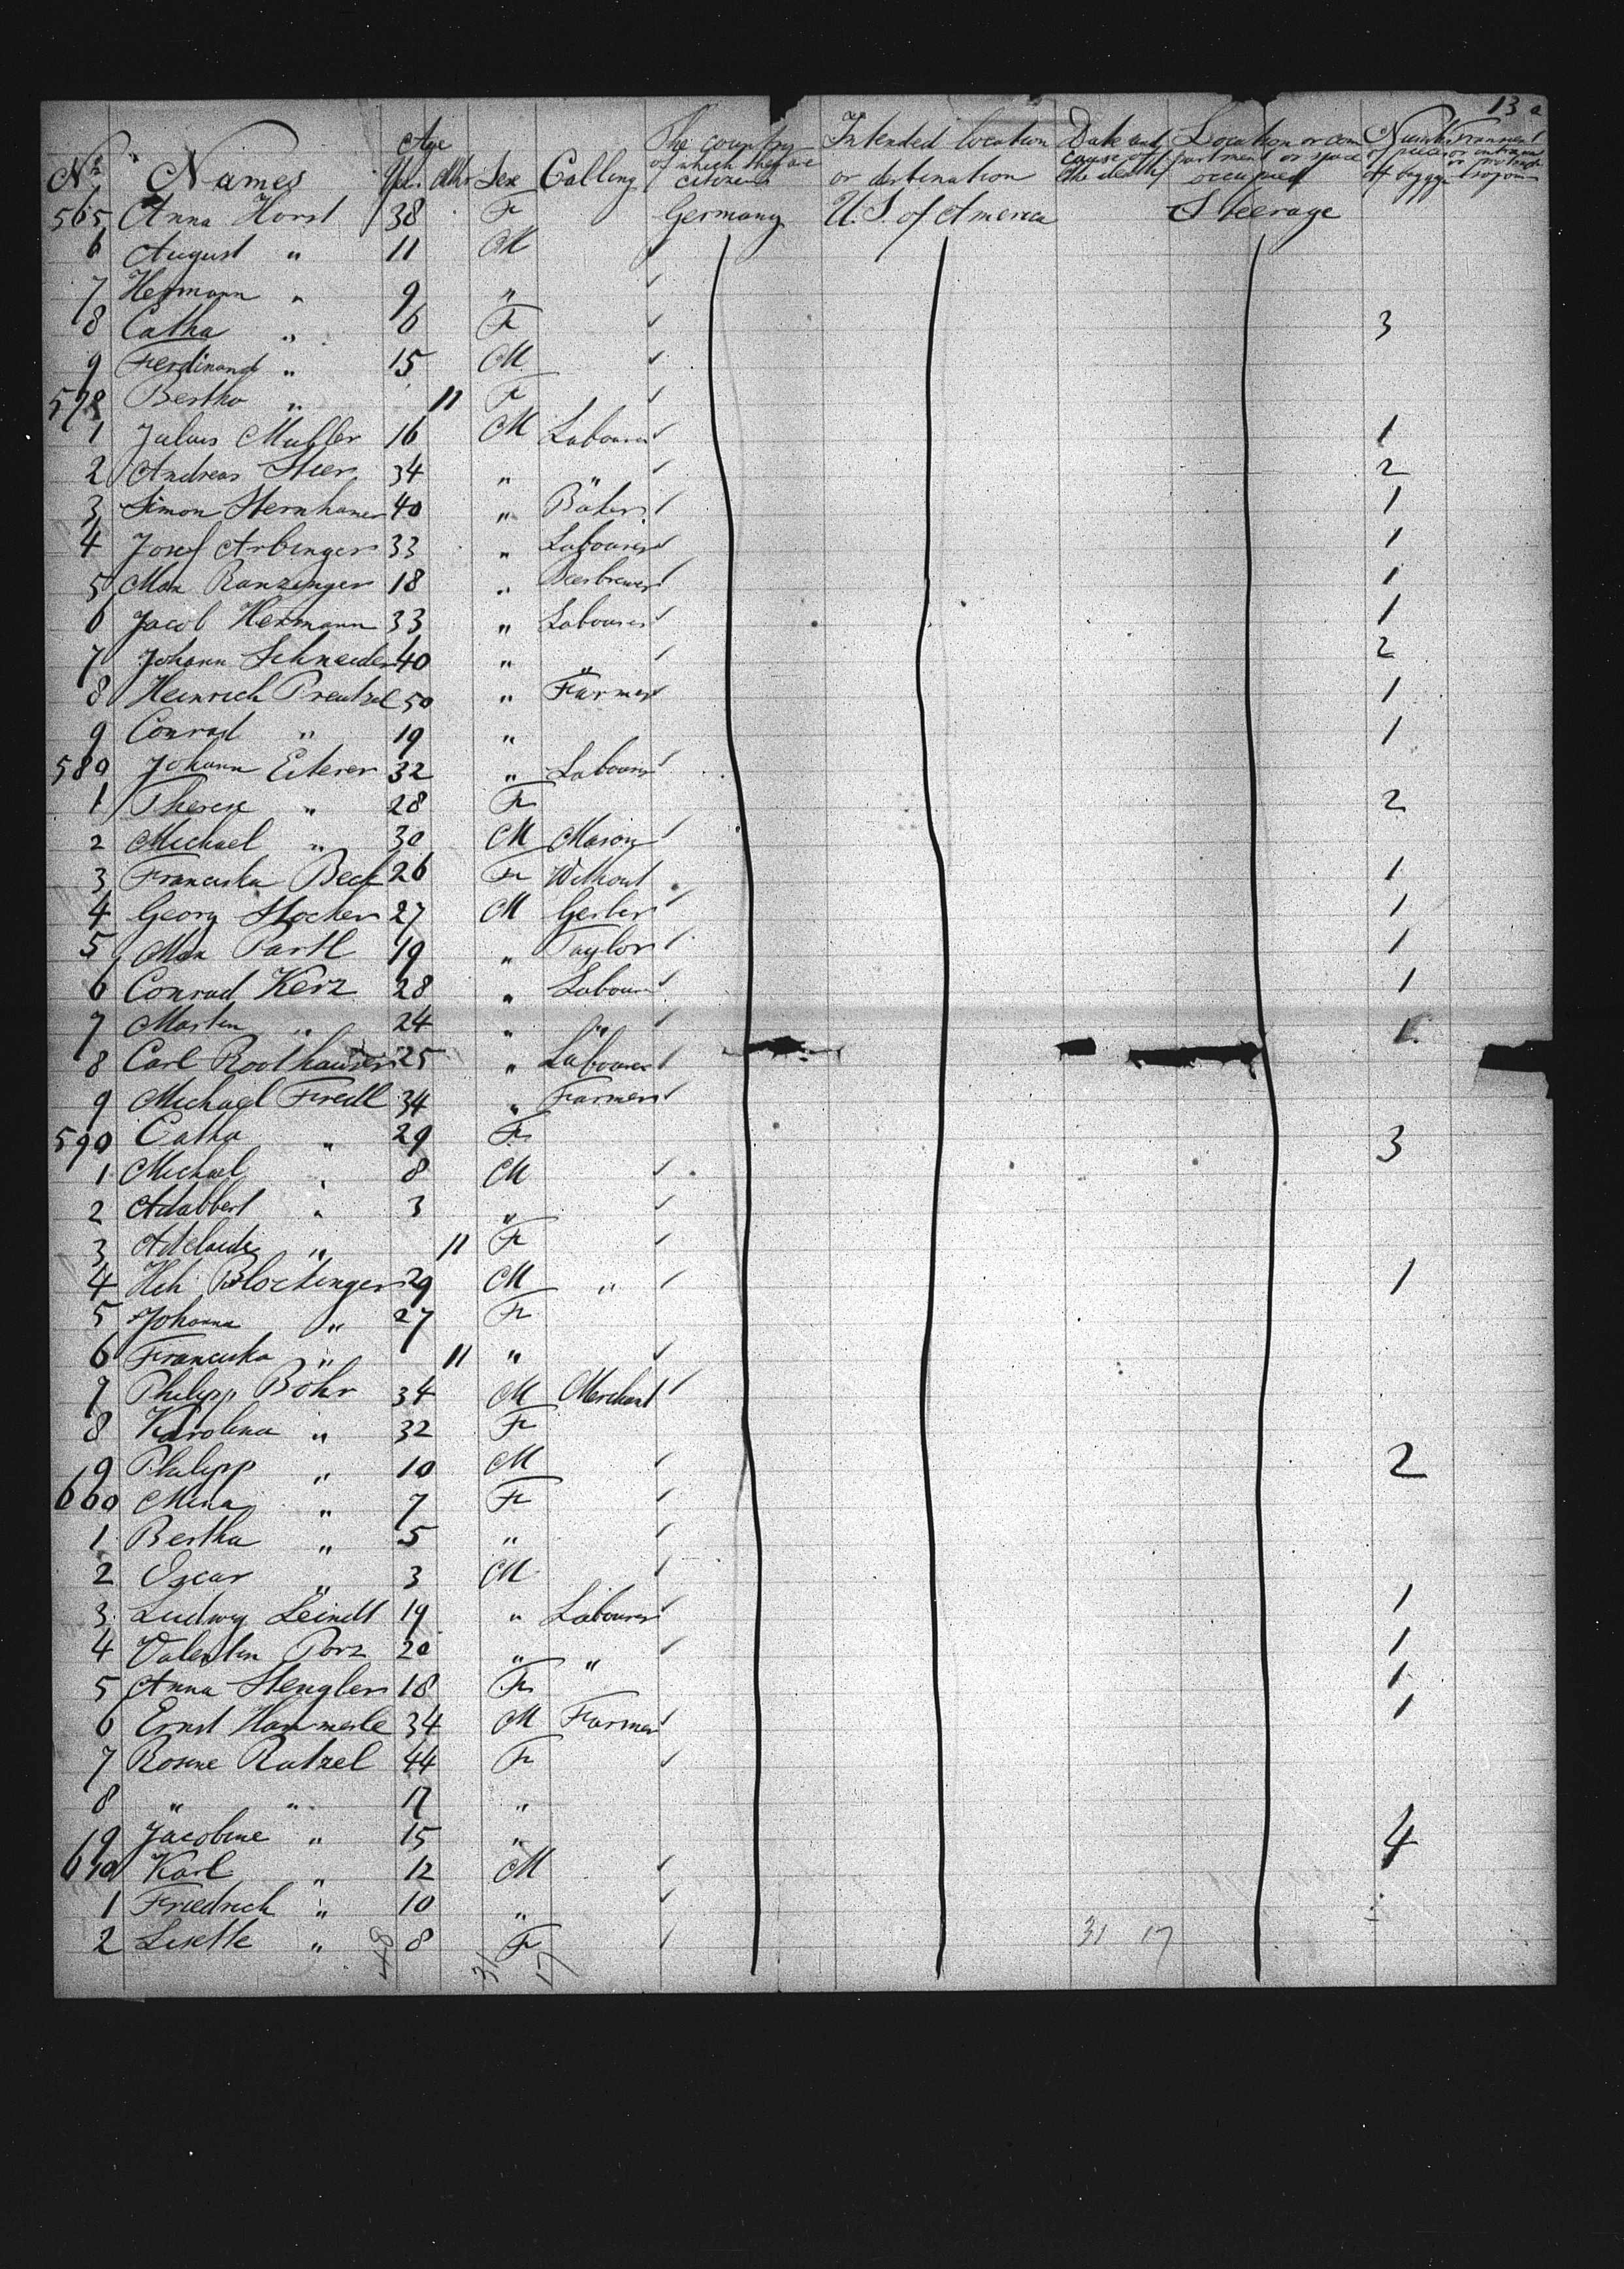 13
Nr. Names Age Yrs. Mths Sex Calling The country of which they are citizens Intended location or destination Date and cause of the death Location or compartment or space occupied Number of pieces of baggage
565 Anna Horst 38 F Germany U.S. of America Steerage
6 August " 11 M
7 Hermann " 9 "
8 Catha " 6 F 3
9 Ferdinand " 15 M
570 Bertha " 11 F
1 Julius Muller 16 M Labourer 1
2 Andreas Stier 34 " " 2
3 Simon Sternhaner 40 " Baker 1
4 Josef Arbinger 33 " Labourer 1
5 Max Ranzinger 18 " Beerbrewer 1
6 Jacob Hermann 33 " Labourer 1
7 Johann Schneider 40 " " 2
8 Heinrich Preutzel 50 " Farmer 1
9 Conrad " 19 " 1
580 Johann Eiterer 32 " Labourer
1 Therese " 28 F 2
2 Michael " 30 M Mason
3 Franciska Beck 26 F Without 1
4 Georg Stocker 27 M Gerber 1
5 Max Partl 19 " Taylor 1
6 Conrad Kerz 28 " Labourer 1
7 Martin " 24 " " 1
8 Carl Roothauser 25 " Labourer
9 Michael Friedl 34 " Farmer
590 Catha " 29 F 3
1 Michael " 8 M
2 Adalbert " 3 "
3 Adelaide " 11 F
4 Hch Blochinger 29 M " 1
5 Johanna " 27 F
6 Franciska " 11 "
7 Philipp Bohr 34 M Merchant
8 Karolina " 32 F
9 Philipp " 10 M 2
600 Mina " 7 F
1 Bertha " 5 "
2 Oscar " 3 M
3 Ludwig Leindl 19 " Labourer 1
4 Valentin Porz 20 " " 1
5 Anna Stengler 18 F 1
6 Ernst Hammerle 34 M Farmer 1
7 Rosine Ratzel 44 F
8 " " 17 "
9 Jacobine " 15 " 4
610 Karl " 12 M
1 Friedrich " 10 "
2 Lisette " 8 F
48 31 17 31 17